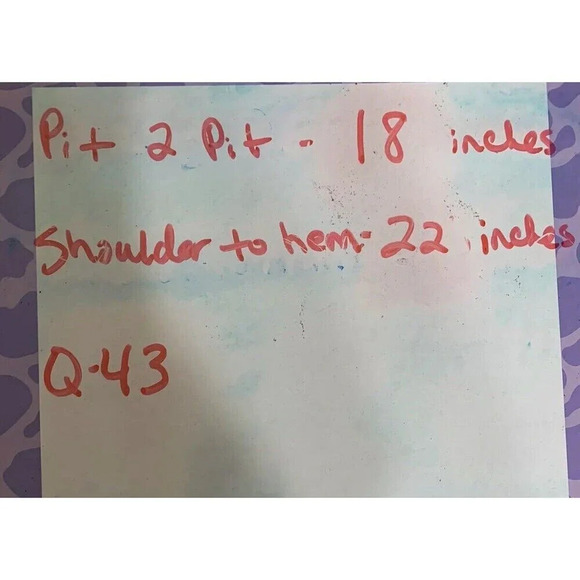 Pit 2 Pit - 18 inches
Shoulder to hem- 22 inches
Q-43